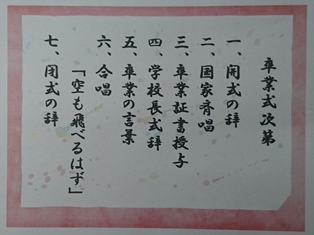 卒業式次第
一、開式の辞
二、国家斉唱
三、卒業証書授与
四、学校長式辞
五、卒業の言葉
六、合唱
「空も飛べるはず」
七、閉式の辞